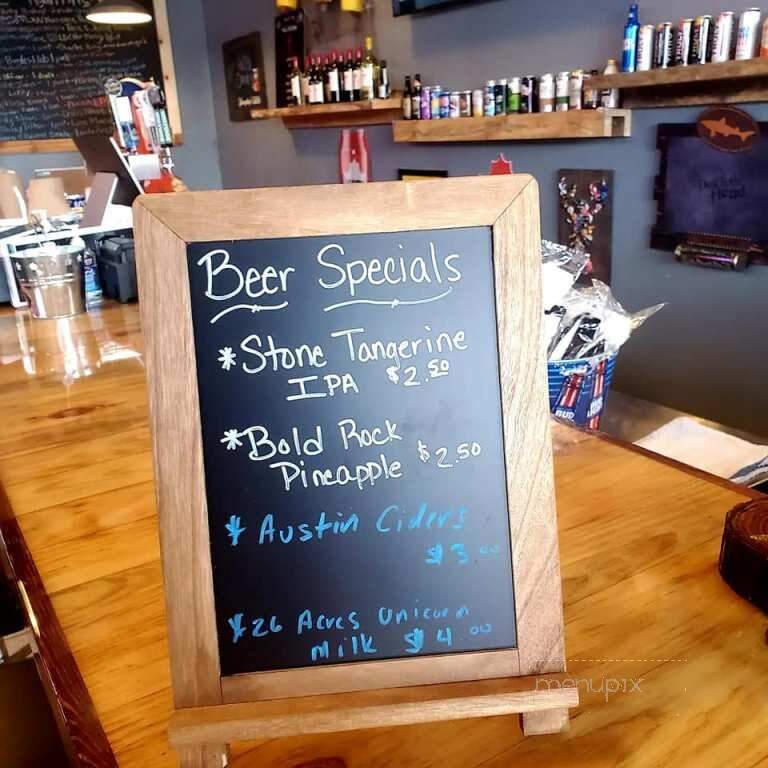 Beer Specials
*Stone Tangerine
IPA $2.50
*Bold Rock
Pineapple $2.50
* Austin Ciders
$3.00
*26 Acres Unicorn
Milk $4.00
BUD
menupix